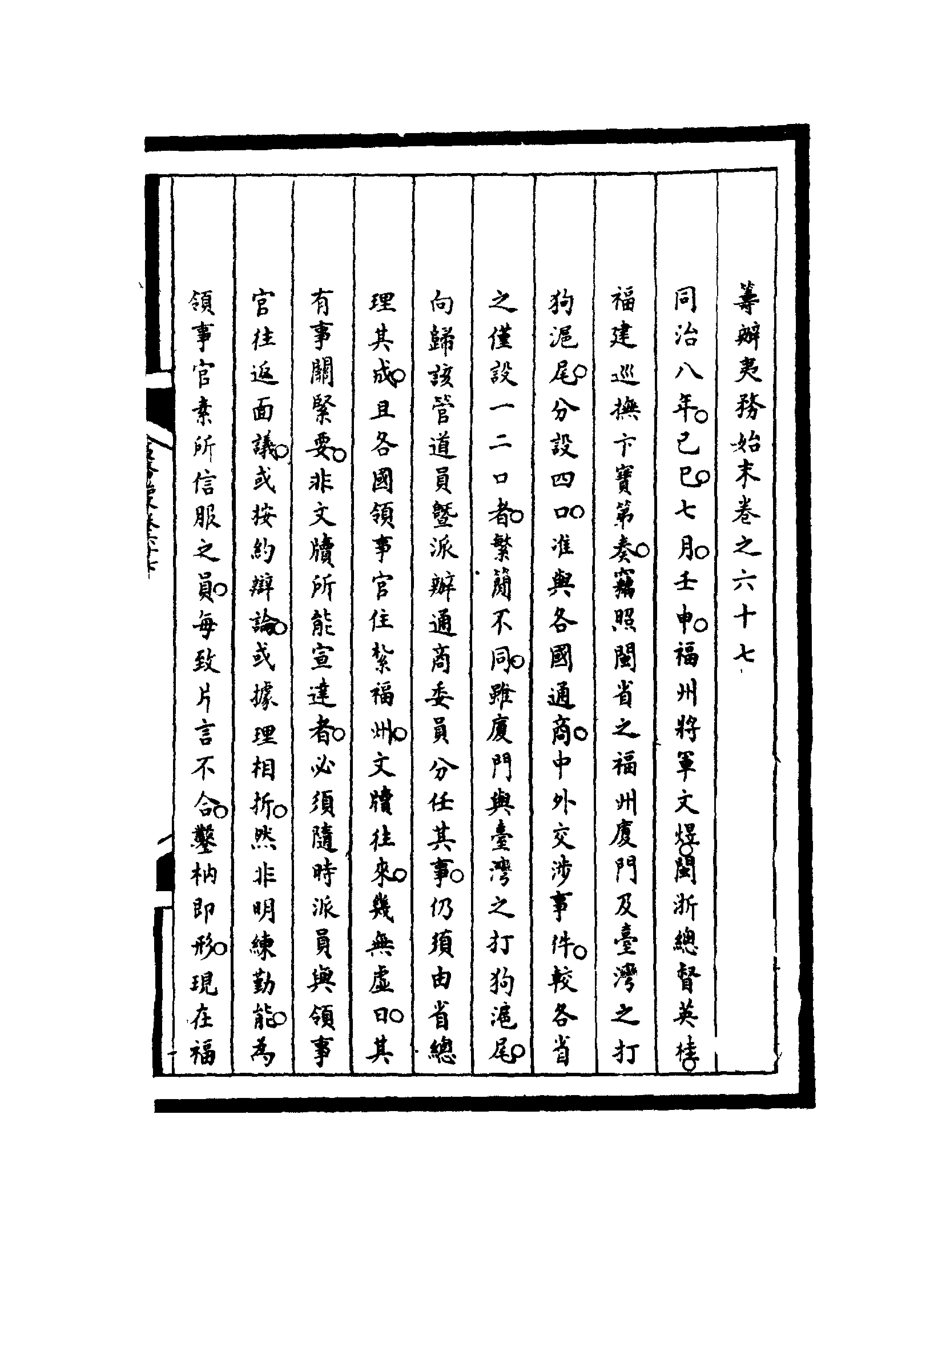 籌辦夷務始末卷之六十七
同治八年。己巳。七月。壬申。福州將軍文煜。閩浙總督英桂。
福建巡撫卞寶第奏。竊照閩省之福州廈門及臺灣之打
狗滬尾。分設四口。准與各國通商。中外交涉事件。較各省
之僅設一二口者。繁簡不同。雖廈門與臺灣之打狗滬尾。
向歸該管道員暨派辦通商委員分任其事。仍須由省總
理其成。且各國領事官住紮福州。文牘往來。幾無虛日。其
有事關緊要。非文牘所能宣達者。必須隨時派員與領事
官往返面議。或按約辯論。或據理相折。然非明練勤能。為
領事官素所信服之員。每致片言不合。鑿枘即形。現在福